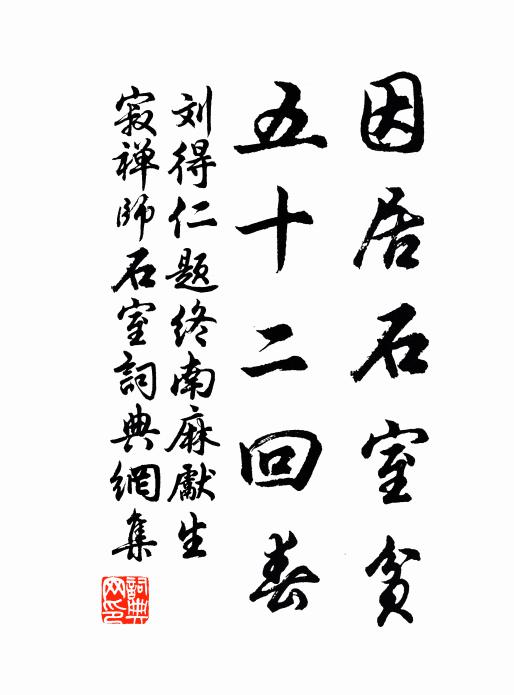 因居石室贫
五十二回春
刘得仁题终南麻獻生
寂禅师石室詞典網集
詞典网印